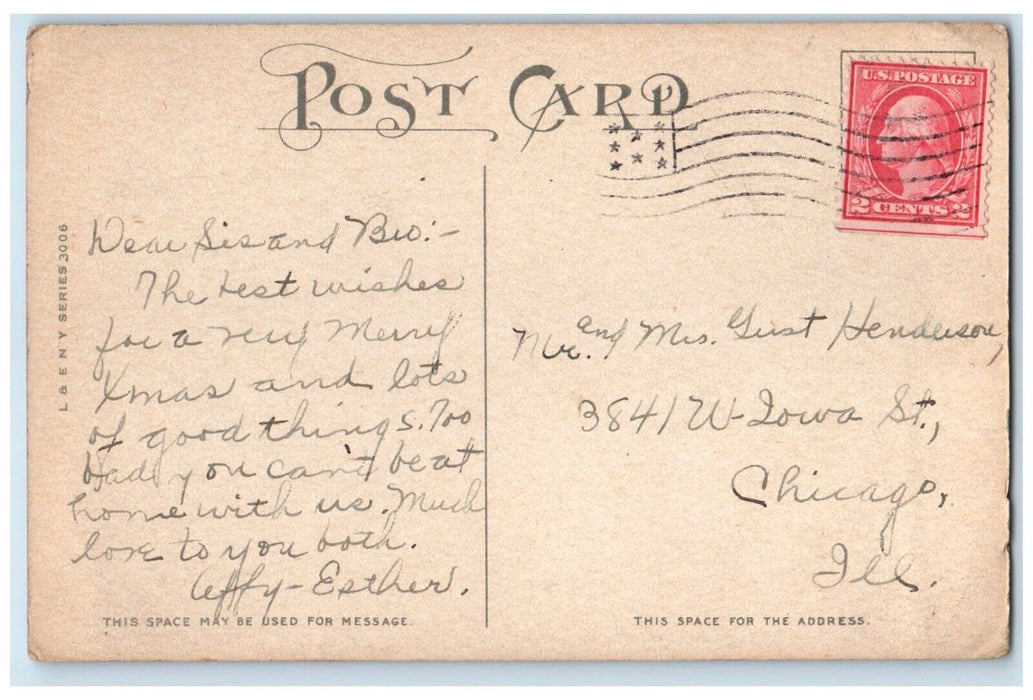 POST CARD
U.S. POSTAGE
2 CENTS 2
L & E N Y SERIES 3006
Dear Sis and Bro:-
The best wishes
for a very Merry
Xmas and lots
of good things. Too
bad you can't be at
home with us. Much
love to you both.
Affy- Esther.
Mr. and Mrs. Gust Henderson,
3841 W- Iowa St.,
Chicago,
Ill.
THIS SPACE MAY BE USED FOR MESSAGE.
THIS SPACE FOR THE ADDRESS.